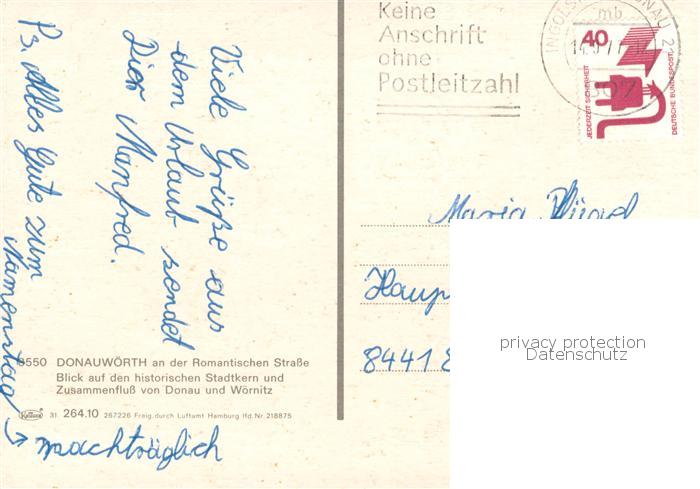 Viele Grüße aus
dem Urlaub sendet
Dier Manfred.
Ps. Alles Gute zum
Namenstag
→ nachträglich
Keine
Anschrift
ohne
Postleitzahl
INGOLSTADT DONAU 2
mb
40
JEDERZEIT SICHERHEIT
DEUTSCHE BUNDESPOST
Maria
Haup
8441
privacy protection
Datenschutz
DONAUWÖRTH an der Romantischen Straße
Blick auf den historischen Stadtkern und
Zusammenfluß von Donau und Wörnitz
31 264.10 267226 Freig. durch Luftamt Hamburg lfd. Nr. 218875